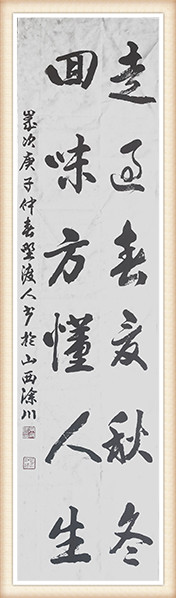 走过春夏秋冬
回味方懂人生
岁次庚子仲春坚渡人书于山西涂川